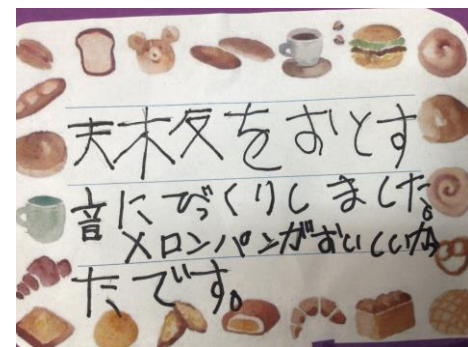 天板をおとす
音にびっくりしました。
メロンパンがおいしいかっ
たです。